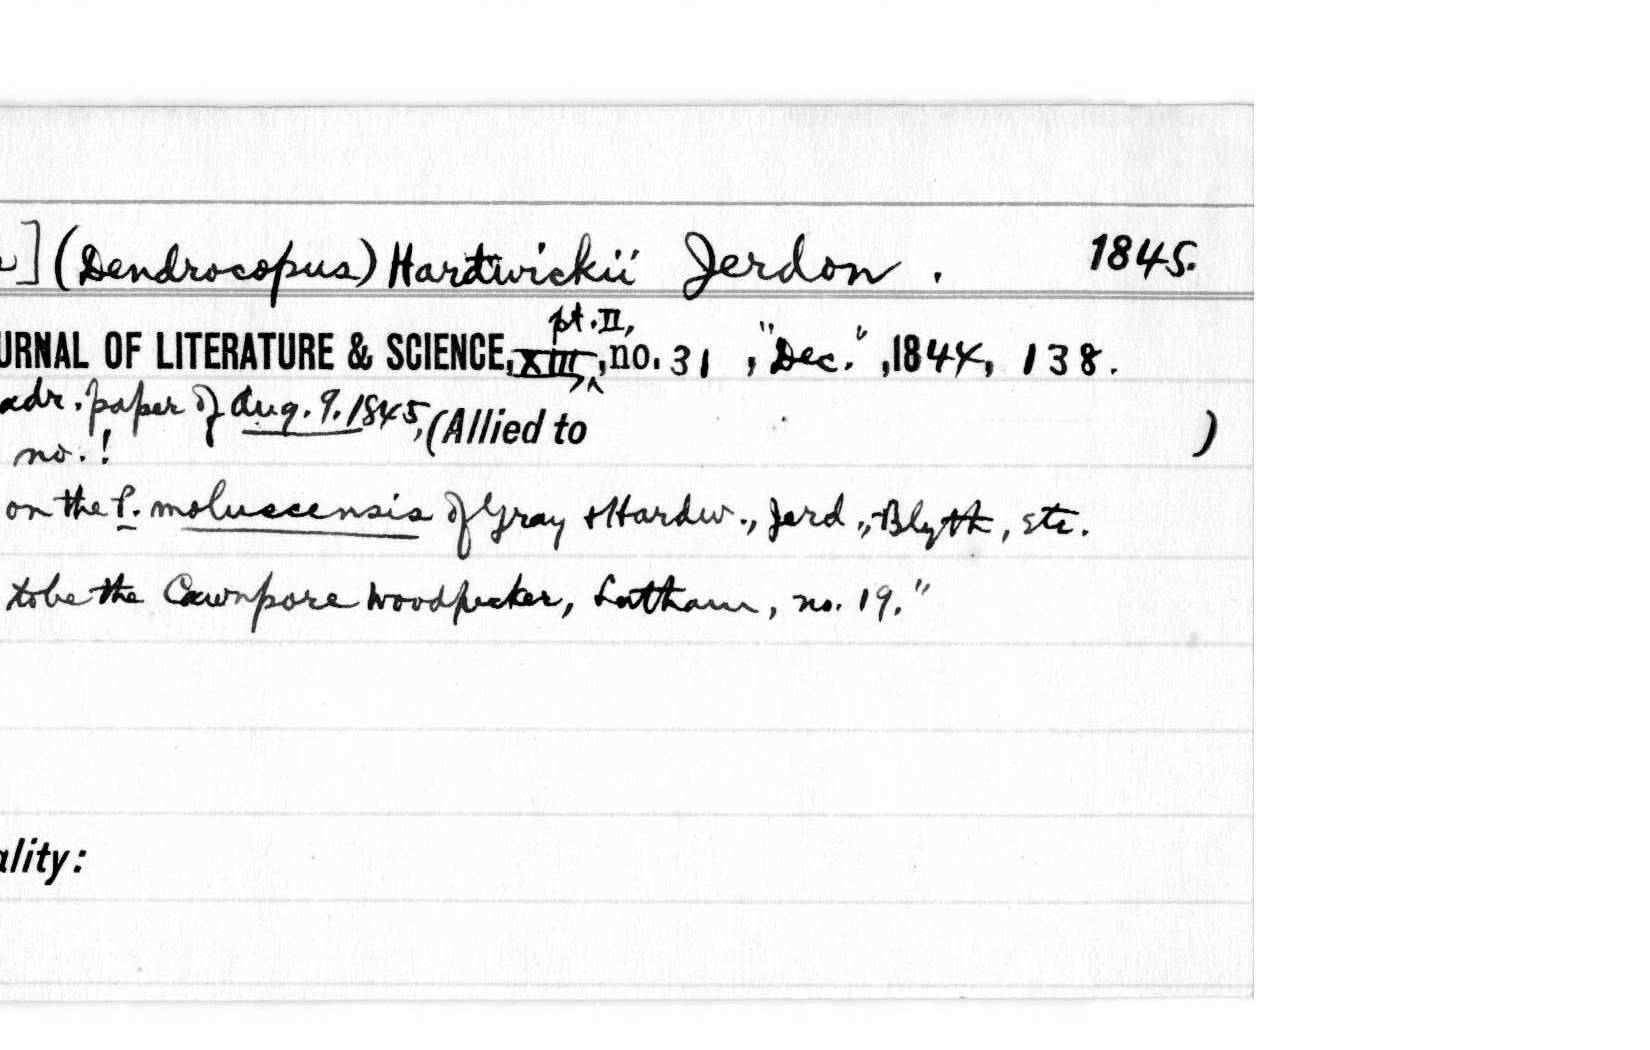 ](Dendrocopus) Hardwickii Jerdon. 1845.
pt. II,
URNAL OF LITERATURE & SCIENCE, XIII, no. 31, "Dec.", 1844, 138.
adr. paper of Aug. 9. 1845, (Allied to )
no.!
on the P. moluccensis of Gray & Hardw., Jerd., Blyth, etc.
to be the Cawnpore Woodpecker, Latham, no. 19."
ality: